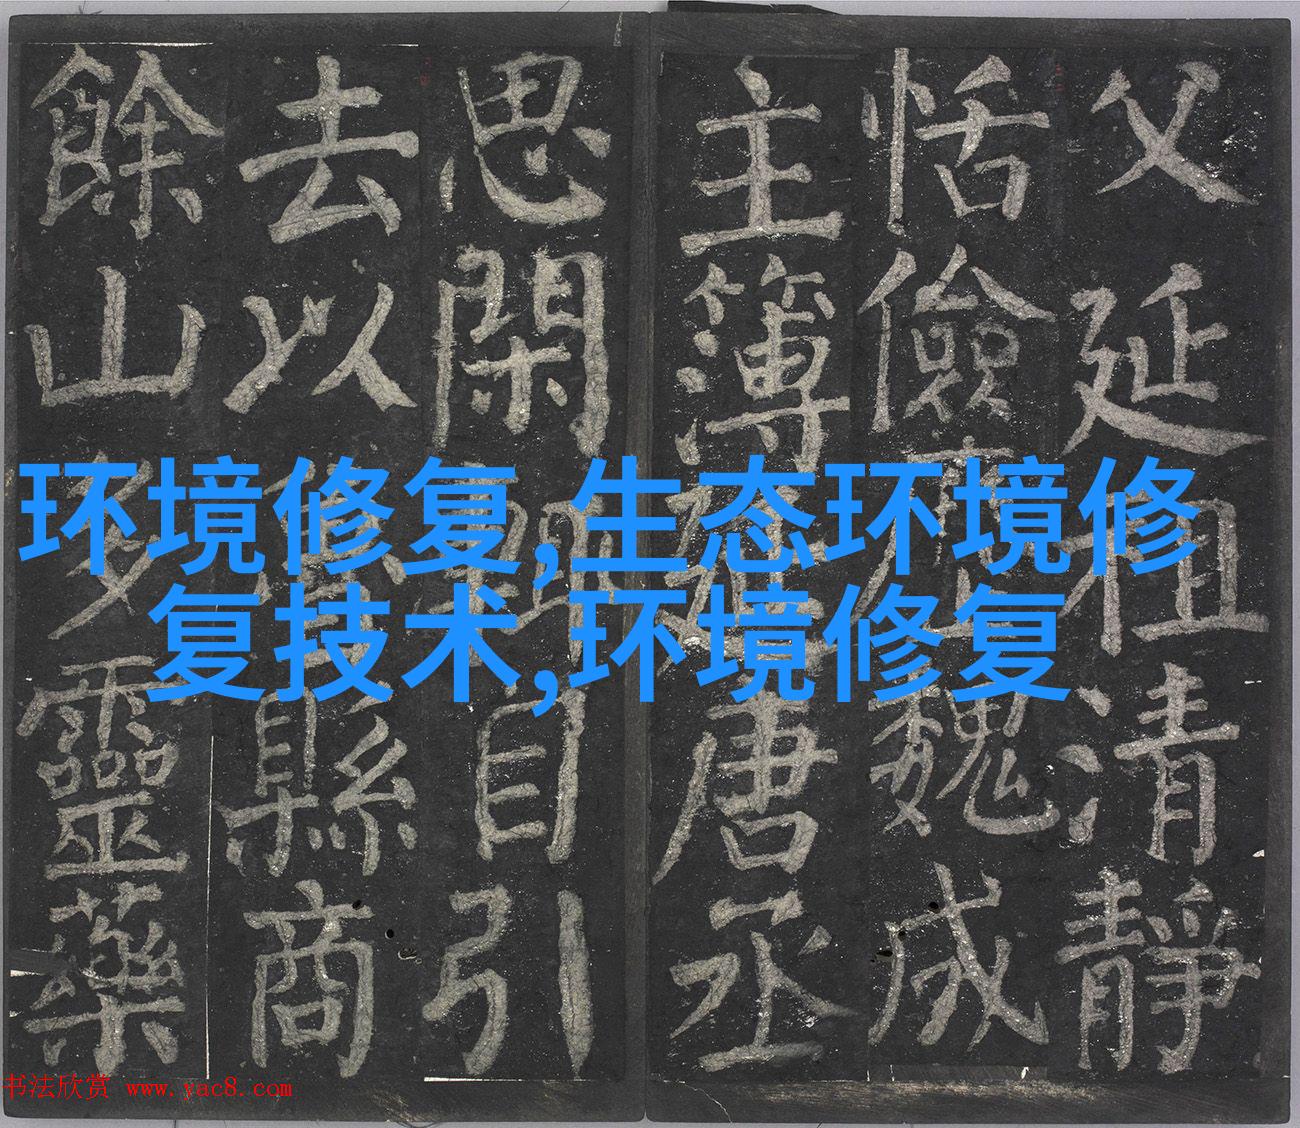 父延祖清靜
恬儉歷魏成
主簿延唐丞
思閑輒自引
去以魯縣商
餘山多靈藥
环境修复,生态环境修
复技术,环境修复
书法欣赏 www.yac8.com